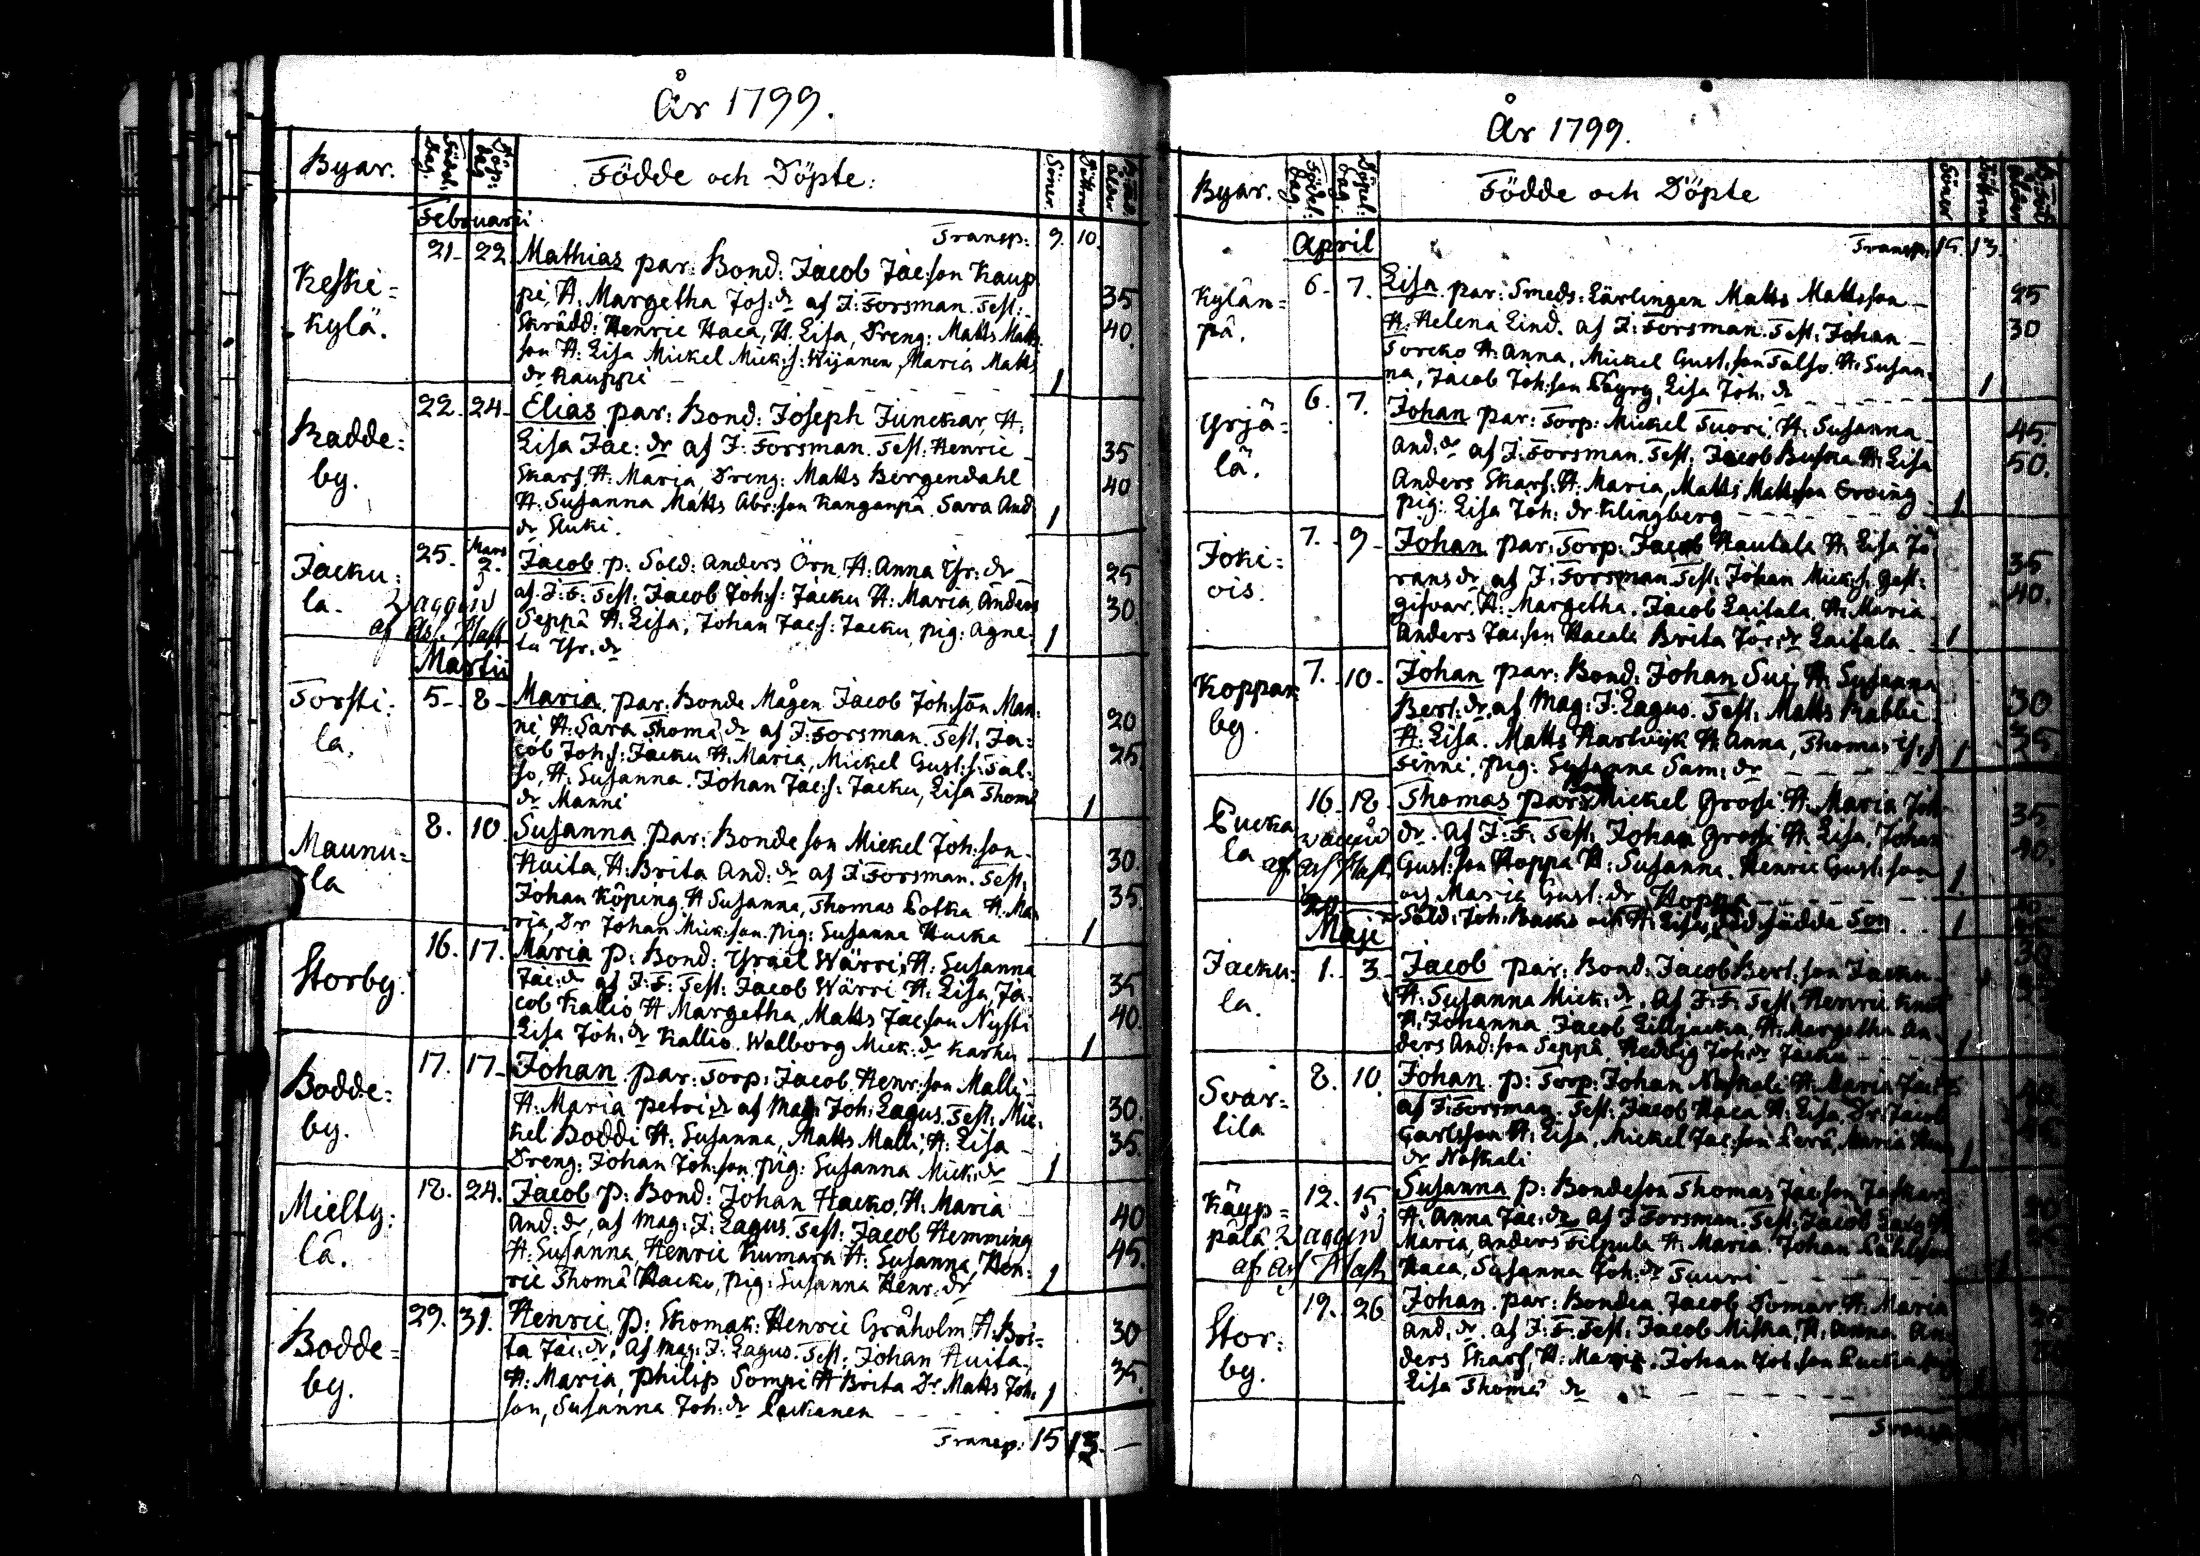 År 1799.
Byar. Födel: dag: Döp: dag Födde och Döpte: Söner Döttrar
Februarii
Transp: 9. 10.
Keski= 21- 22 Mathias par: Bond: Jacob Jac:son Kaup
kylä. pi, H. Margetha Joh: dr af J: Forsman. Test: 35
Skrädd: Henric Haca, H. Lisa, Dreng: Matts Matts 40.
son H. Lisa Mickel Mick:s: Wijanen, Maria Matts
dr Kauppi 1
Radde= 22- 24- Elias par: Bond: Joseph Junckar, H:
by. Lisa Jac: dr af J: Forsman. Test. Henric 35
Skarf, H. Maria, Dreng: Matts Bergendahl 40
H. Susanna Matts Abr:son Kanganpä Sara And
dr Kuki. 1
Jacku: 25. Mars 2. Jacob p: Sold: Anders Örn H: Anna Thr: dr 25
la. af J: F: Test: Jacob Joh:s: Jacku H: Maria, Anders 30.
Seppä H. Lisa, Johan Jac:s: Jacku, pig: Agne:
ta Thr. dr 1
Martii
Torsti: 5- 8- Maria, par: Bonde Mågen Jacob Joh:son Man:
la. ni, H. Sara Thomæ dr af J: Forsman Test, Ja= 20
cob Joh:s: Jacku H. Maria, Mickel Gust:s: Tal= 25
so, H. Susanna. Johan Jac:s: Jacku, Lisa Thomæ
dr Manni 1
Maunu= 8. 10 Susanna par: Bondeson Mickel Joh:son
la Huita, H. Brita And: dr af J: Forsman. Test, 30.
Johan Köping, H Susanna, Thomas Lotka H. Ma 35.
ria, Dr Johan Mick:son. pig: Susanna Hucka 1
Storby. 16. 17. Maria p: Bond: Israel Wärri, H: Susanna
Jac: dr af J: F: Test: Jacob Wärri H. Lisa, Ja= 35
cob Kallio H Margetha, Matts Jac:son Nysti 40.
Lisa Joh. dr Kallio. Walborg Mick: dr Karhu 1
Bodde= 17. 17- Johan par: Torp: Jacob Henr:son Malli
by. H. Maria Petri dr af Mag: Joh: Lagus. Test: Mic= 30.
kel Boddi H: Susanna, Matts Malli, H: Lisa 35.
Dreng: Johan Joh:son, pig: Susanna Mick: dr 1
Mielty: 18. 24. Jacob p: Bond: Johan Hacko, H: Maria
lä. And: dr, af Mag: J: Lagus. Test: Jacob Hemming 40
H: Susanna, Henric Kumara H: Susanna, Hen: 45.
ric Thomæ Hacko, pig: Susanna Henr: dr 1
Bodde= 29. 31. Henric p: Skomak: Henric Gråholm, H: Bri=
by. ta Jac: dr, af Mag: J: Lagus. Test: Johan Huita. 30
H: Maria, Philip Sompi H Brita Dr Matts Joh: 35.
son, Susanna Joh: dr 1
Transp: 15 13.
År 1799.
Byar. Födel: dag. Döpel: dag: Födde och Döpte Söner Döttrar
April Transp: 15. 13.
Kylän= 6. 7. Lisa par: Smeds: Lärlingen Matts Mattsson 25
pä. H. Helena Lind. af J: Forsman. Test: Johan 30
Torcko H. Anna, Mickel Gust:son Talso. H: Susan
na, Jacob Joh:son, Lisa Joh. dr 1
Yrjä= 6. 7. Johan par: Torp: Mickel Tuori, H. Susanna 45.
lä. And: dr af J: Forsman. Test. Jacob H: Lisa 50.
Anders Skarf. H. Maria, Matts Mattsson
pig: Lisa Joh: dr Klingberg 1
Joki= 7. 9- Johan par: Torp: Jacob Rautala H. Lisa Jö
ois. rans dr, af J: Forsman Test: Johan Mick:s. Gest= 35
gifvar, H: Margetha. Jacob Laitala, H: Maria 40.
Anders Jac:son Hacala Brita Jör: dr Laitala 1
Koppar 7. 10- Johan par: Bond: Johan Sui, H: Susanna
by. Bert: dr, af Mag: J: Lagus. Test: Matts Rabbi 30
H: Lisa. Matts Hartwijk H Anna, Thomas 25
Finni, pig: Susanna Sam: dr 1
16. 18. Thomas par: Mickel Grossi H. Maria Joh 35
la dr. af J: F: Test: Johan Grossi H. Lisa, Johan 40.
Gust:son Hoppa H. Susanna. Henric Gust:son
och Maria Gust: dr Hoppa 1
Sold: Joh: Backs och H. Lisas död födda Son 1
Maji
Jacku= 1. 3- Jacob par: Bond: Jacob Bert:son Jacku 30
la. H: Susanna Mick: dr, af J: F: Test. Henric
H: Johanna, Jacob Lilljacku H. Margetha An
ders And:son Seppä, Hedvig Joh: dr Jacku 1
Svar= 8. 10 Johan p: Torp: Johan Naskali H. Maria
tila af J: Forsman. Test: Jacob Haca H. Lisa, Dr Jacob
Carlsson H: Lisa, Mickel Jac:son, Maria
dr Naskali 1
Käyp= 12. 15. Susanna p: Bondeson Thomas Jac:son
pälä H. Anna Jac: dr af J Forsman. Test: Jacob
Maria, Anders Filpula H: Maria. Johan
Haca, Susanna Joh: dr Tuuri
Stor: 19. 26 Johan par: Bonden Jacob Somar H: Maria
by. And: dr, af J: F: Test: Jacob Miska, H: Anna An
ders Skarf, H: Maria. Johan Joh:son
Lisa Thomæ dr
Transp